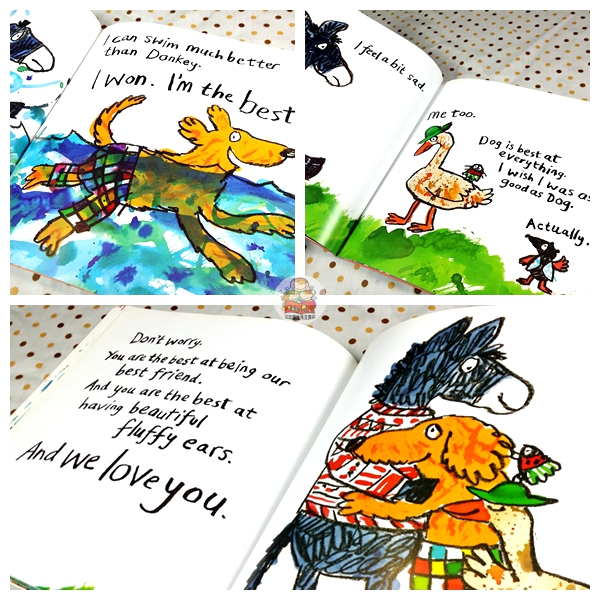 I can swim much better
than Donkey.
I won. I'm the best
I feel a bit sad.
me too.
Dog is best at
everything.
I wish I was as
good as Dog.
Actually,
Don't worry.
You are the best at being our
best friend.
And you are the best at
having beautiful
fluffy ears.
And we love you.